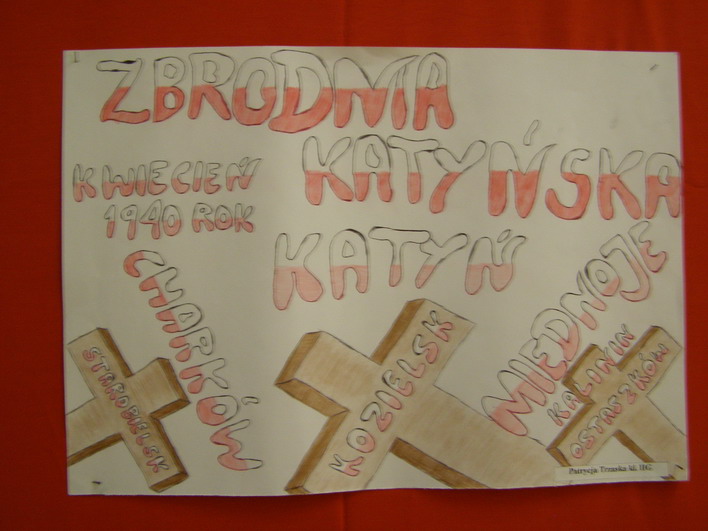 ZBRODNIA
KATYŃSKA
KWIECIEŃ
1940 ROK
KATYŃ
CHARKÓW
MIEDNOJE
STAROBIELSK
KOZIELSK
KALININ
OSTASZKÓW
Patrycja Trzaska kl. IIG